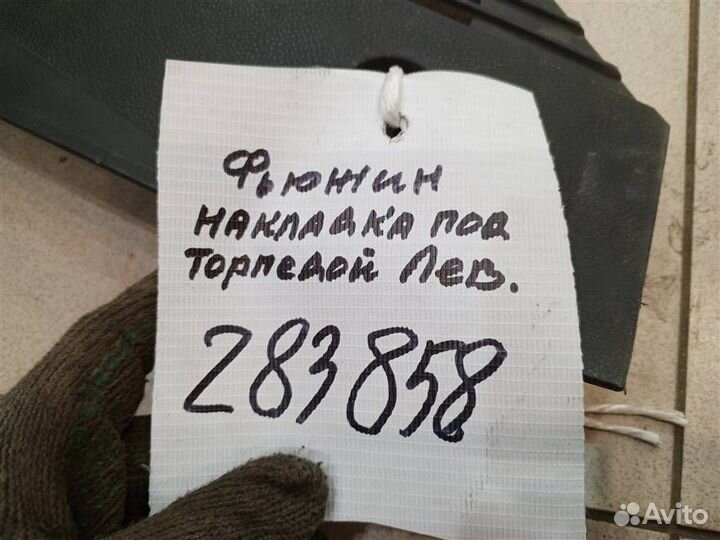 Фьюжин
накладка под
торпедой Лев.
283858
Avito